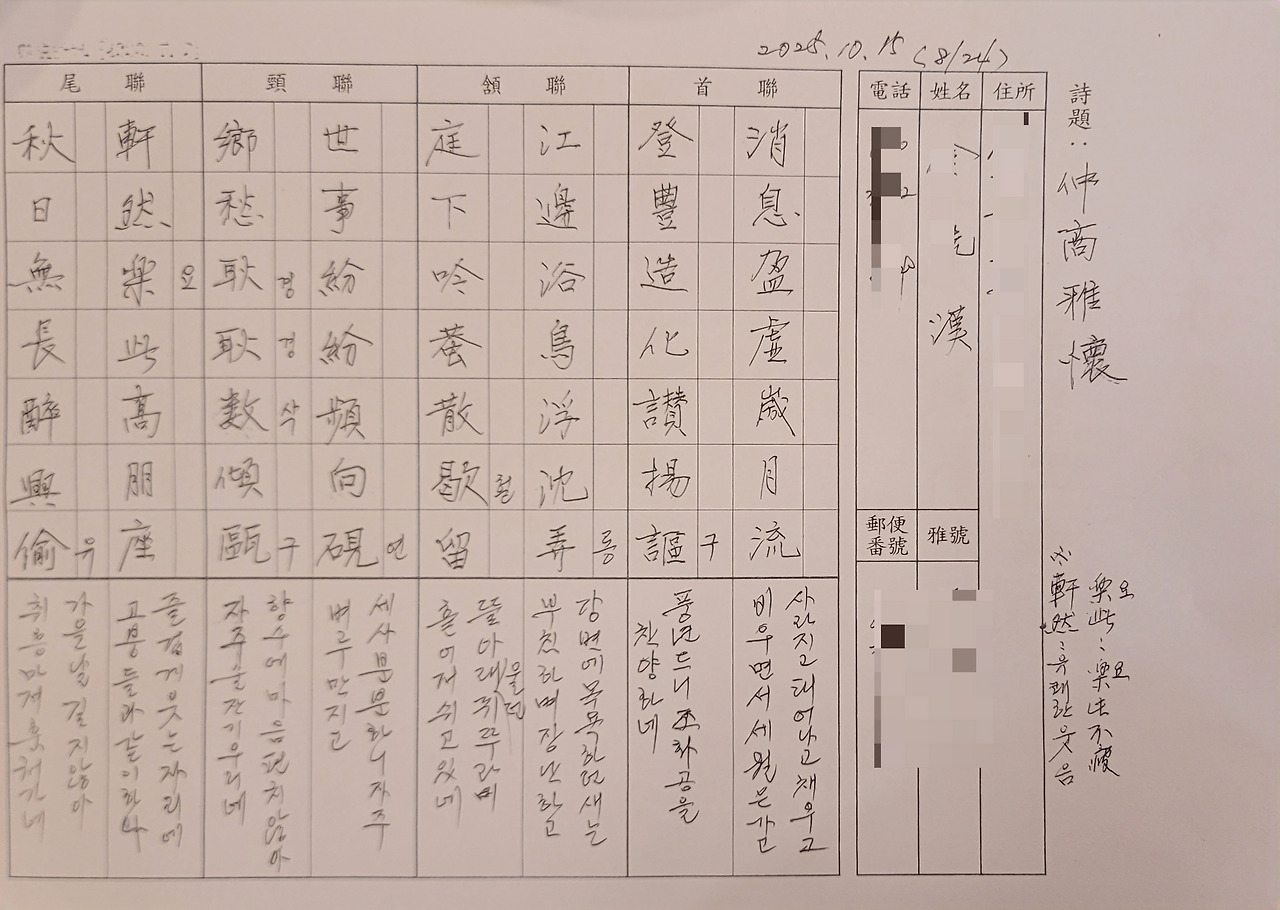 2025.10.15 (8/24)
詩題: 仲商雅懷
住所
姓名
漢
電話
雅號
郵便番號
樂요此: 樂요此不疲
※軒然: 유쾌한 웃음
首聯
消息盈虛歲月流
사라지고 태어나고 채우고
비우면서 세월은 가고
登豐造化讚揚謳구
풍년드니 조화공을
찬양하네
頷聯
江邊浴鳥浮沈弄롱
강변에 목욕하던 새는
부침하며 장난하고
庭下吟蛩散歇헐留
뜰아래 울던 귀뚜라미
흩어져 쉬고 있네
頸聯
世事紛紛頻向硯연
세사 분분하니 자주
벼루 만지고
鄉愁耿경耿경數삭傾甌구
향수에 마음 편치 않아
자주 술잔 기우리네
尾聯
軒然樂요此高朋座
즐겁게 웃는 자리에
고붕들과 같이하나
秋日無長醉興偷유
가을날 길지 않아
취흥마저 훔쳐가네